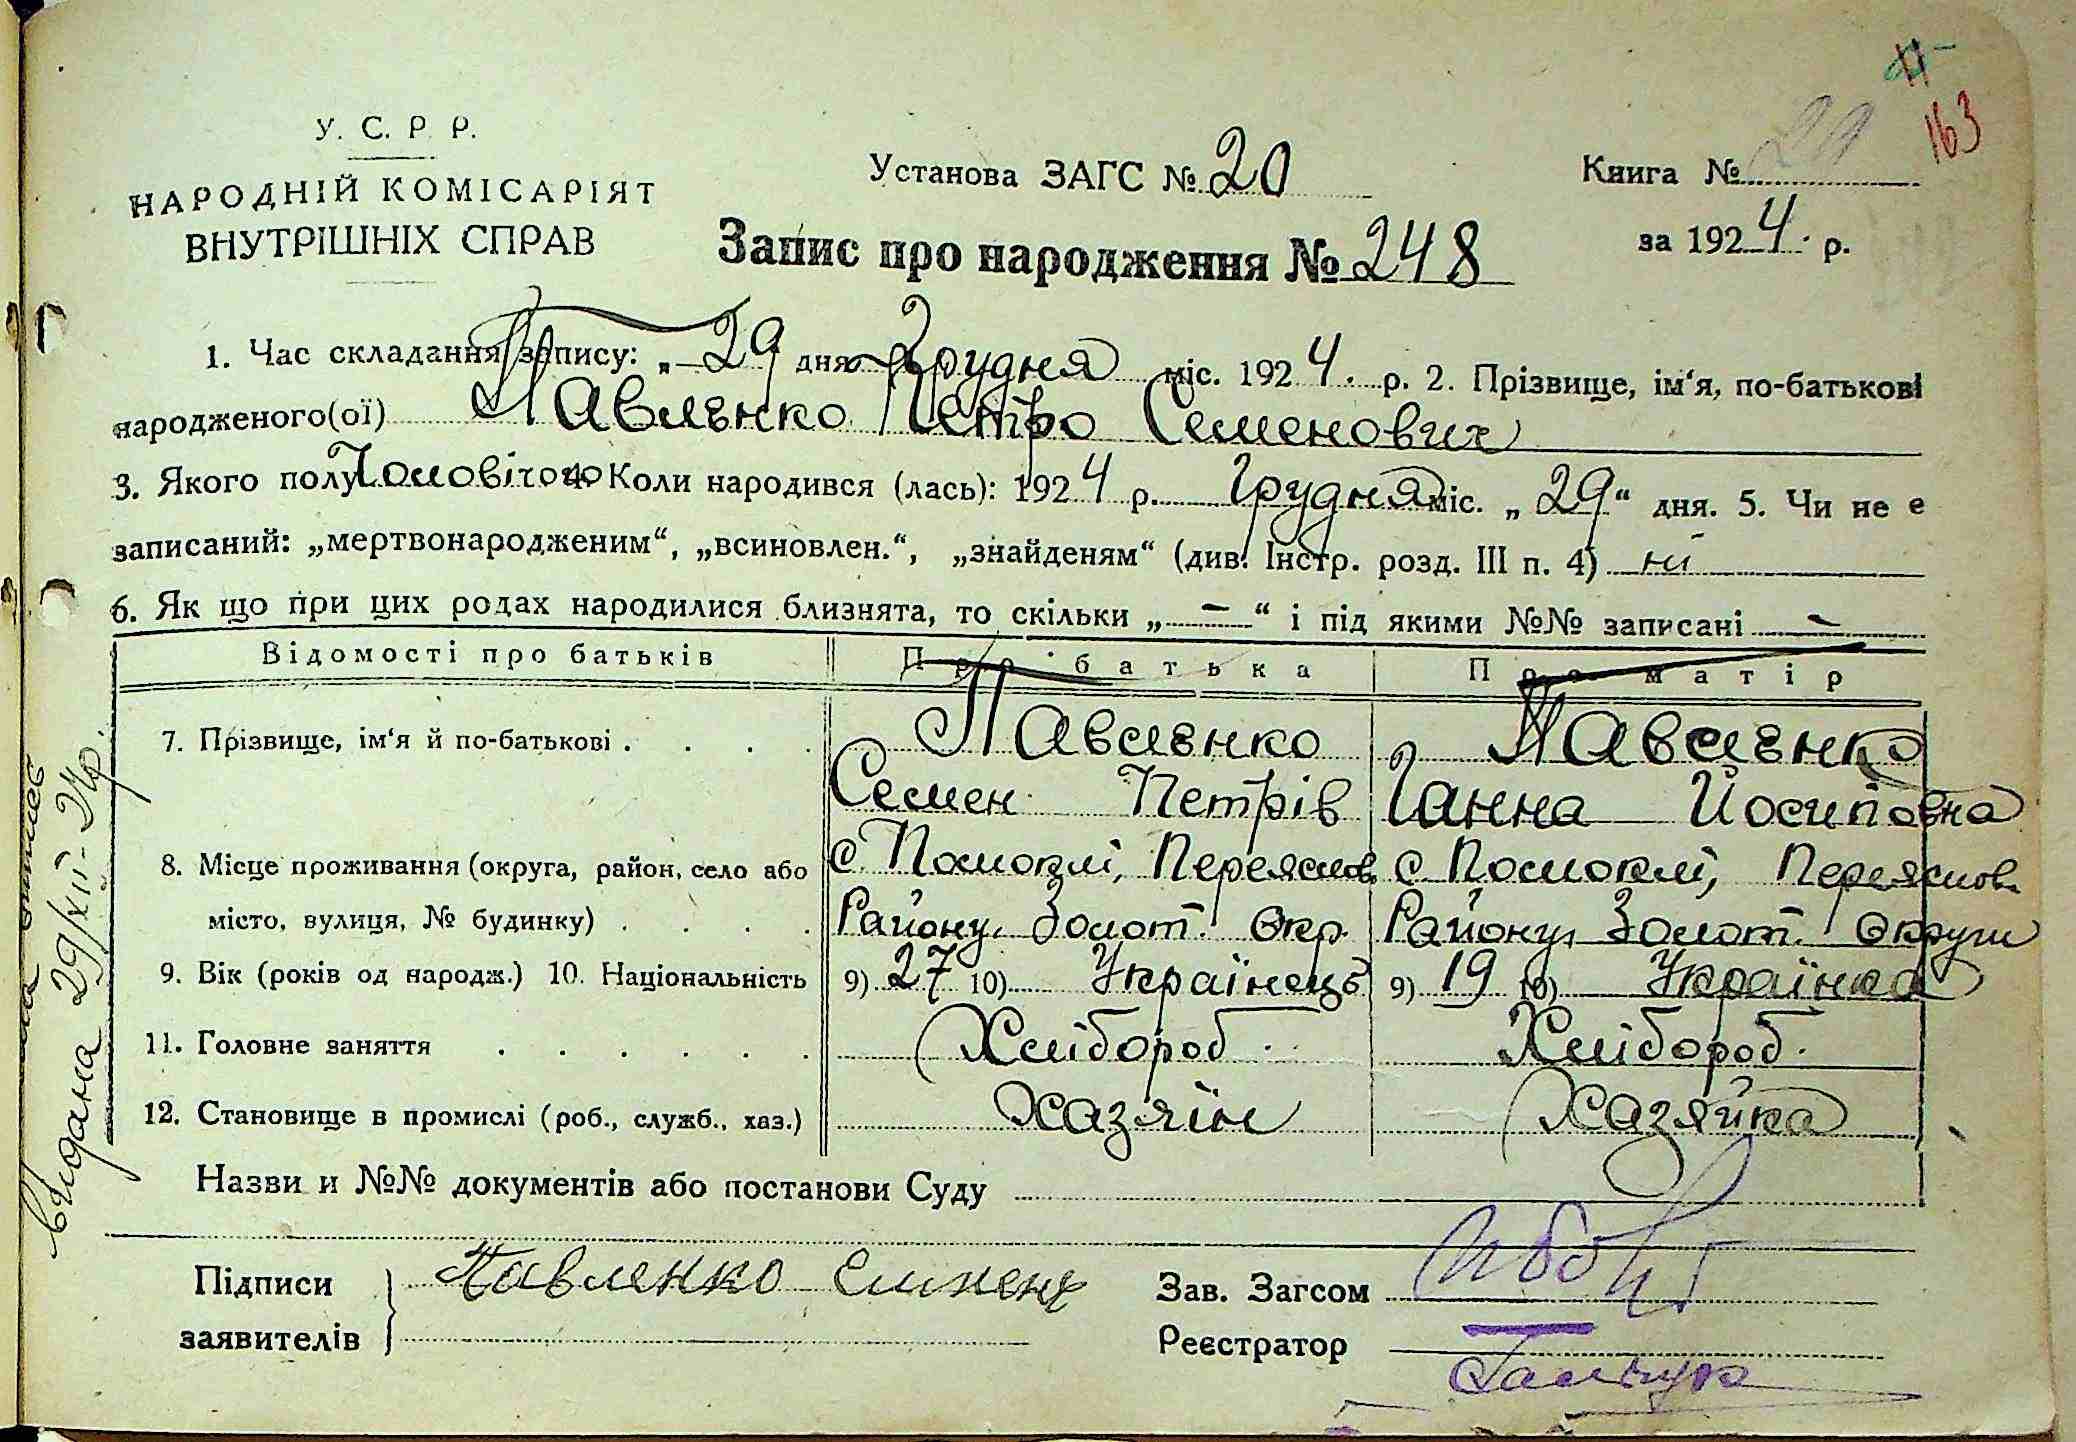 163
У. С. Р. Р.
НАРОДНІЙ КОМІСАРІЯТ
ВНУТРІШНІХ СПРАВ
Установа ЗАГС № 20
Запис про народження № 248
Книга №
за 1924 р.
1. Час складання запису: „ 29 дня Грудня міс. 1924. р. 2. Прізвище, ім‘я, по-батькові
народженого(ої) Павленко Петро Семенович
3. Якого полу Чоловічого 4. Коли народився (лась): 1924 р. Грудня міс. „ 29 “ дня. 5. Чи не є
записаний: „мертвонародженим“, „всиновлен.“, „знайденям“ (див. Інстр. розд. III п. 4) ні
6. Як що при цих родах народилися близнята, то скільки „ — “ і під якими №№ записані —
Відомості про батьків Про батька Про матір
7. Прізвище, ім‘я й по-батькові . . . . Павленко Павленко
Семен Петрів Ганна Йосиповна
8. Місце проживання (округа, район, село або с. Помоклі, Переяслов. с. Помоклі, Переяслов.
місто, вулиця, № будинку) . . . . Району, Золот. Окр. Району, Золот. Округи
9. Вік (років од народж.) 10. Національність 9) 27 10) Українець 9) 19 10) Українка
11. Головне заняття . . . . . . Хлібороб. Хлібороб.
12. Становище в промислі (роб., служб., хаз.) Хазяїн Хазяйка
Назви и №№ документів або постанови Суду
Підписи Павленко
заявителів
Зав. Загсом
Реєстратор
видана 29/XII-24р.